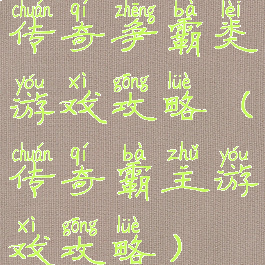 chuán qí zhēng bà lèi
传奇争霸类
yóu xì gōng lüè
游戏攻略(
chuán qí bà zhǔ yóu
传奇霸主游
xì gōng lüè
戏攻略)